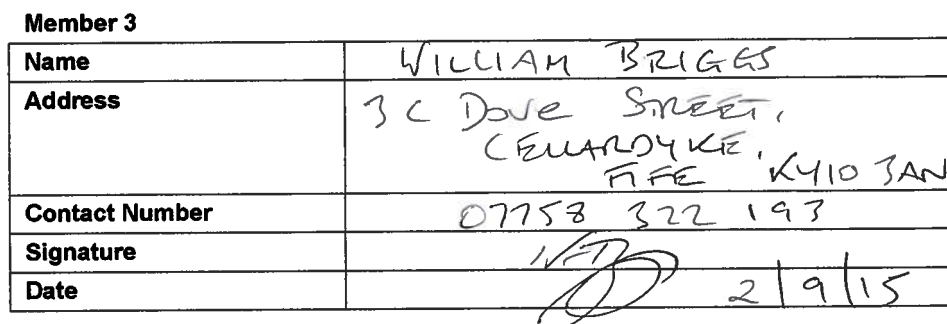 Member 3
Name WILLIAM BRIGGS
Address 3 C Dove STREET,
CELLARDYKE,
FIFE KY10 3AN
Contact Number 07758 322 193
Signature
Date 2/9/15